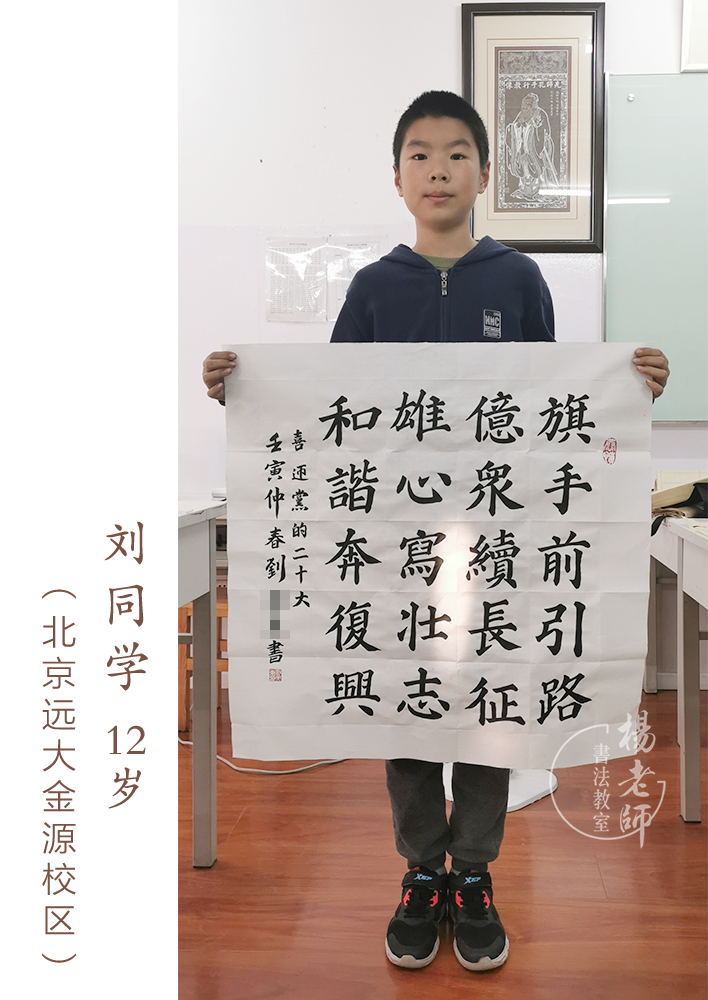 先師孔子行教像
旗手前引路
億衆續長征
雄心寫壯志
和諧奔復興
喜迎黨的二十大
壬寅仲春劉
書
刘同学 12岁
（北京远大金源校区）
楊老師
書法教室